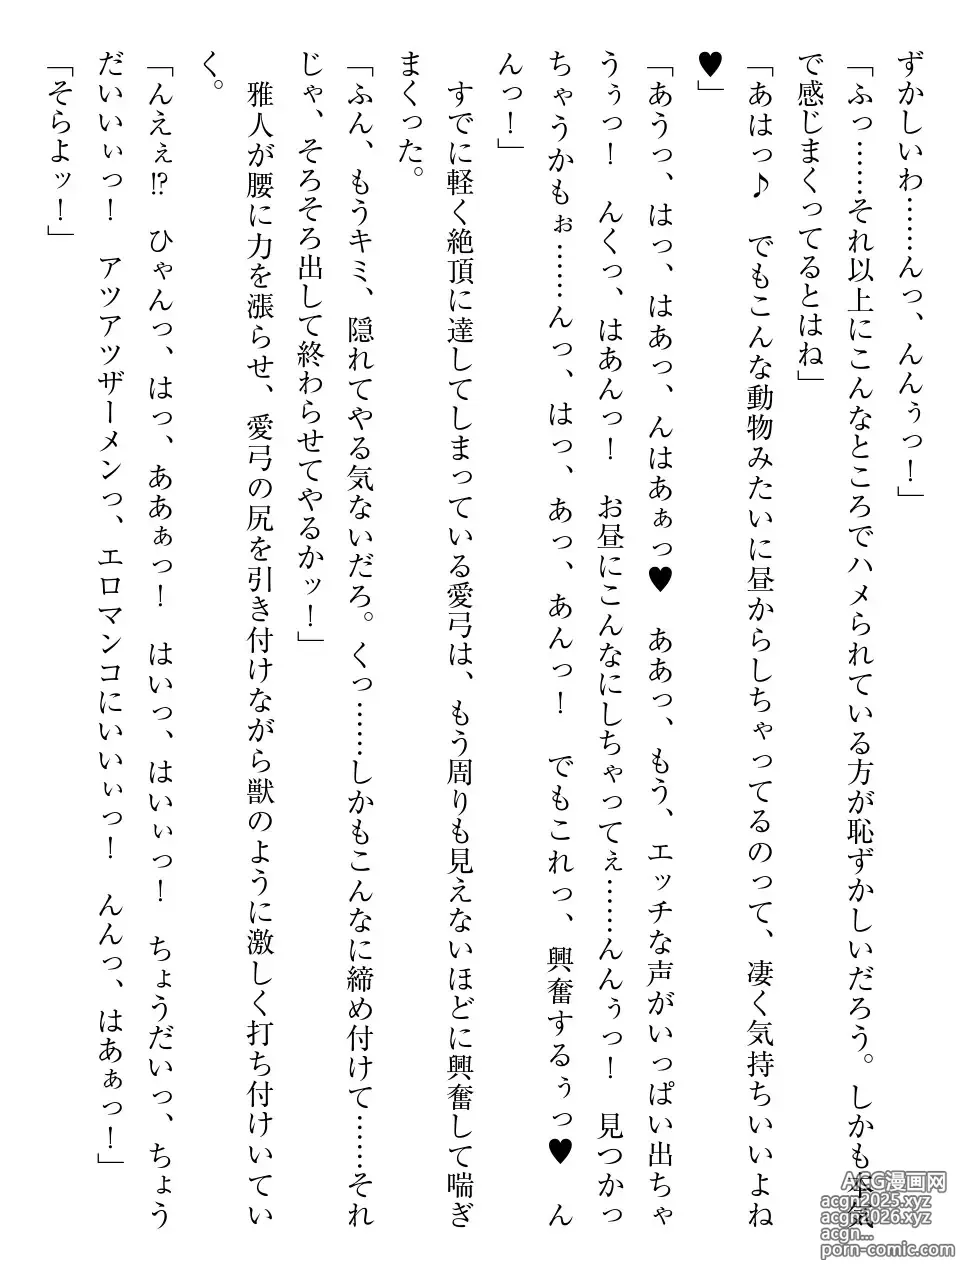 ずかしいわ……んっ、んんぅっ！」
「ふっ……それ以上にこんなところでハメられている方が恥ずかしいだろう。しかも本気
で感じまくってるとはね」
「あはっ♪　でもこんな動物みたいに昼からしちゃってるのって、凄く気持ちいいよね
♥」
「あうっ、はっ、はあっ、んはあぁっ♥　ああっ、もう、エッチな声がいっぱい出ちゃ
うぅっ！　んくっ、はあんっ！　お昼にこんなにしちゃってぇ……んんぅっ！　見つかっ
ちゃうかもぉ……んっ、はっ、あっ、あんっ！　でもこれっ、興奮するぅっ♥　ん
んっ！」
　すでに軽く絶頂に達してしまっている愛弓は、もう周りも見えないほどに興奮して喘ぎ
まくった。
「ふん、もうキミ、隠れてやる気ないだろ。くっ……しかもこんなに締め付けて……それ
じゃ、そろそろ出して終わらせてやるかッ！」
　雅人が腰に力を漲らせ、愛弓の尻を引き付けながら獣のように激しく打ち付けいてい
く。
「んえぇ!?　ひゃんっ、はっ、ああぁっ！　はいっ、はいぃっ！　ちょうだいっ、ちょう
だいいぃっ！　アツアツザーメンっ、エロマンコにいいぃっ！　んんっ、はあぁっ！」
「そらよッ！」
ACG漫画网
acgn2025.xyz
acgn2026.xyz
acgn...
porn-comic.com